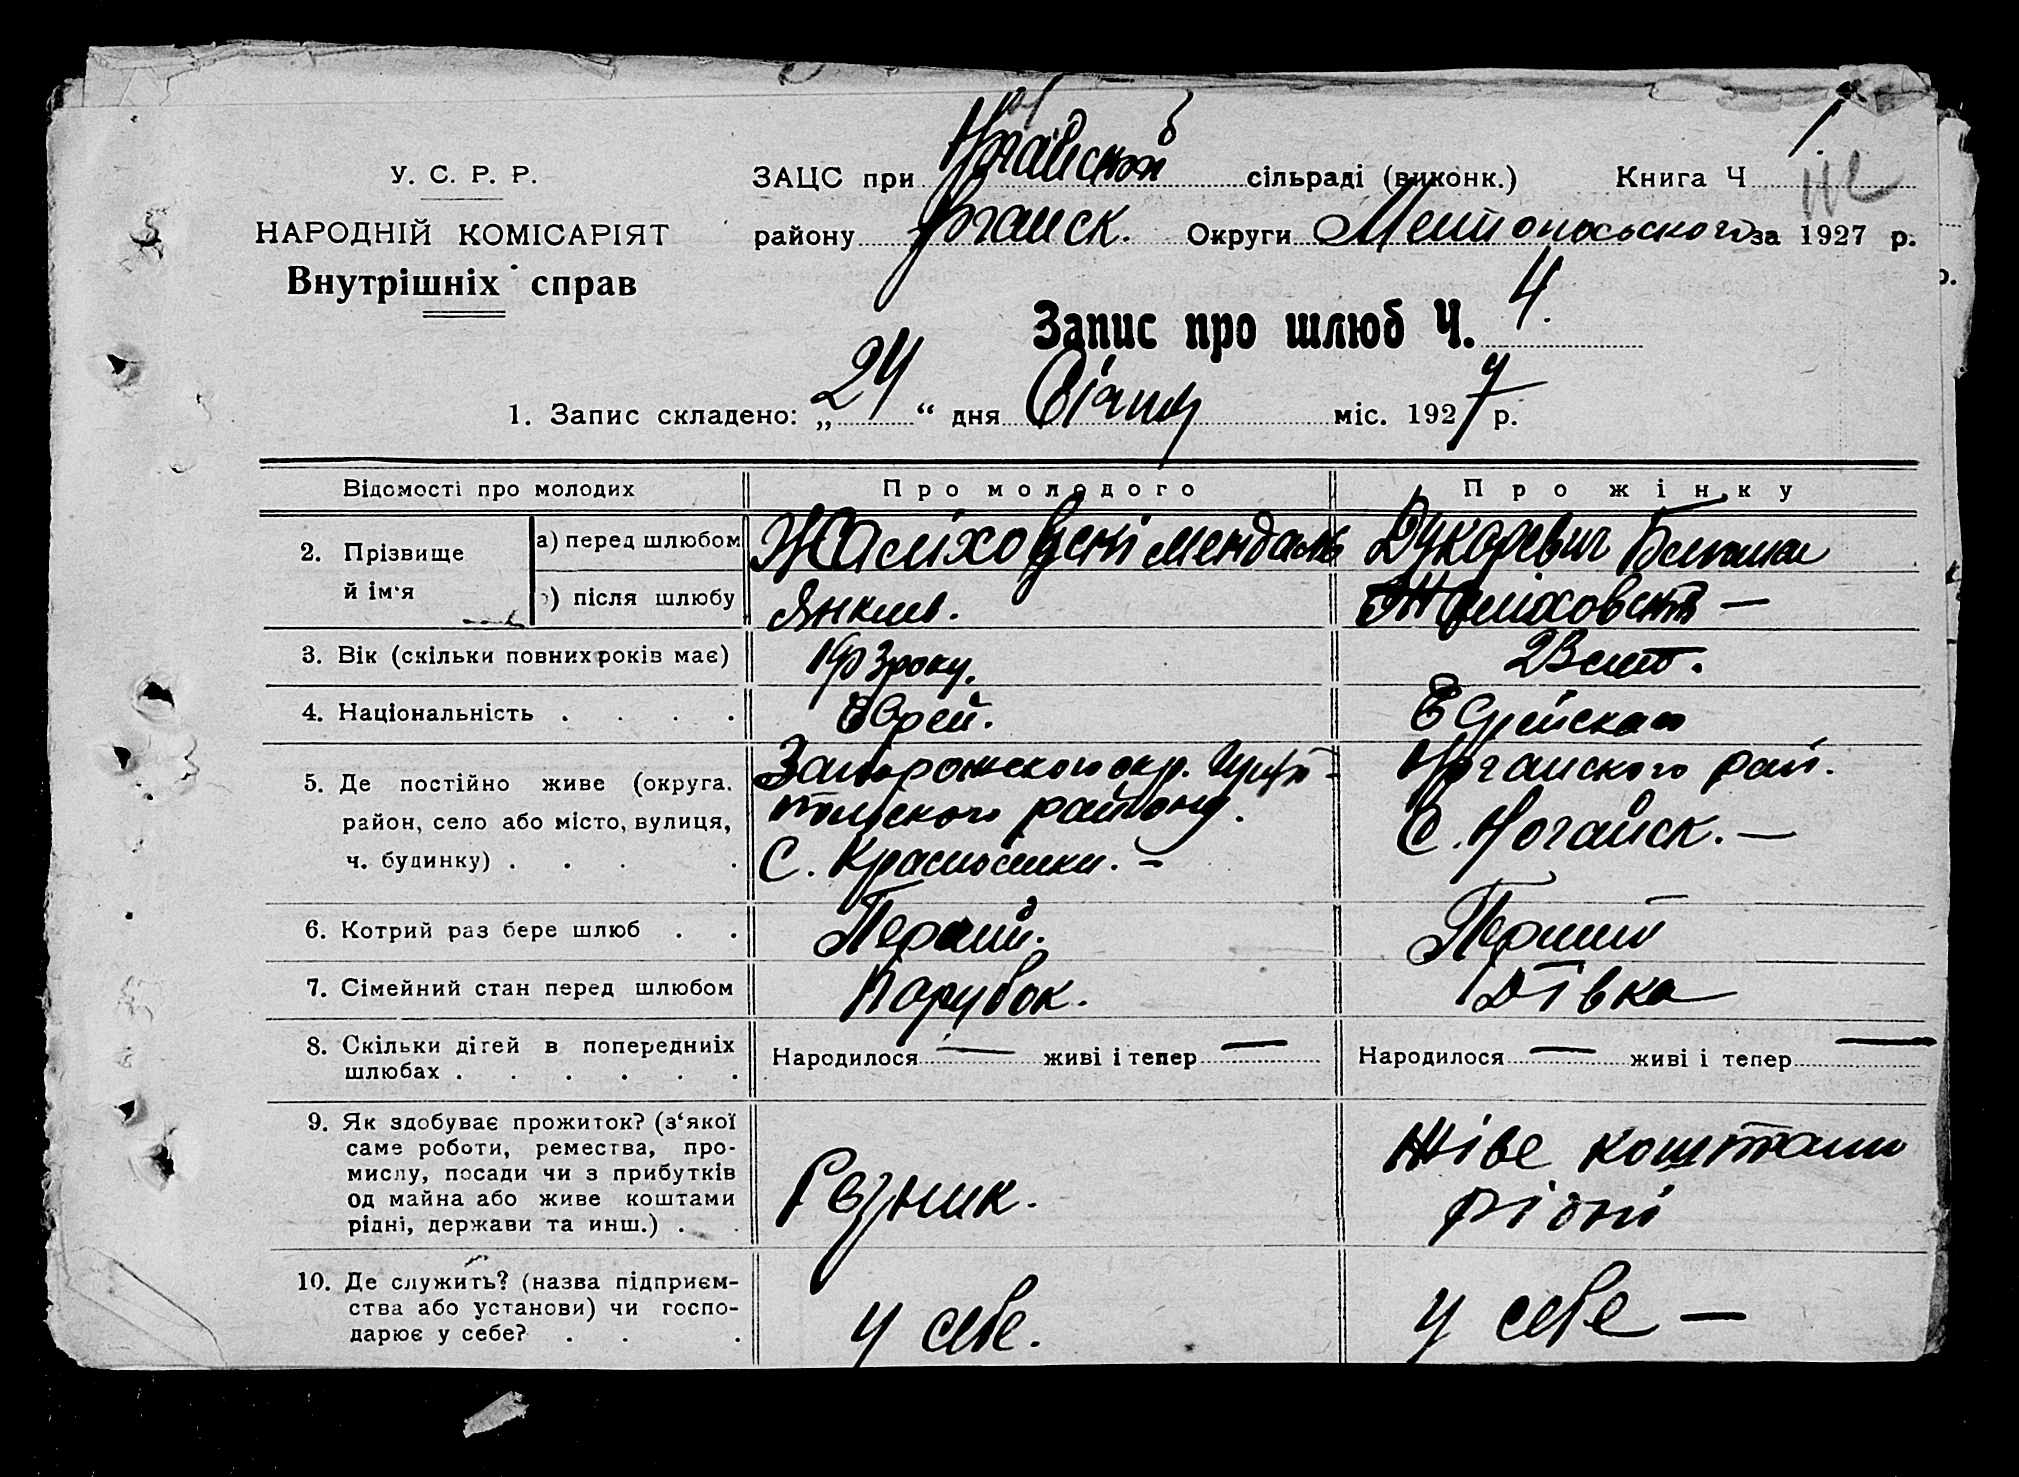 У. С. Р. Р.
НАРОДНІЙ КОМІСАРІЯТ
Внутрішніх справ
ЗАЦС при Ногайской сільраді (виконк.) Книга Ч
району Ногайск. Округи Мелитопольского за 1927 р.
Запис про шлюб Ч. 4.
1. Запис складено: „ 24 “ дня Січня міс. 1927 р.
Відомості про молодих Про молодого Про жінку
2. Прізвище й ім‘я
а) перед шлюбом Дукаревич
б) після шлюбу
3. Вік (скільки повних років має) року. 23 лет.
4. Національність . . . . Еврей. Еврейская
5. Де постійно живе (округа, район, село або місто, вулиця, ч. будинку) . . . .
Запорожского окр.
району.
С.
Ногайского рай.
С. Ногайск. —
6. Котрий раз бере шлюб . . Перший. Перший
7. Сімейний стан перед шлюбом Парубок. Дівка
8. Скільки дітей в попередніїх шлюбах . . . . . .
Народилося — живі і тепер — Народилося — живі і тепер —
9. Як здобуває прожиток? (з‘якої саме роботи, ремества, промислу, посади чи з прибутків од майна або живе коштами рідні, держави та инш.) . .
Резник.
Живе коштами
рідні
10. Де служить? (назва підприємства або установи) чи господарює у себе? . . .
у себе. у себе —